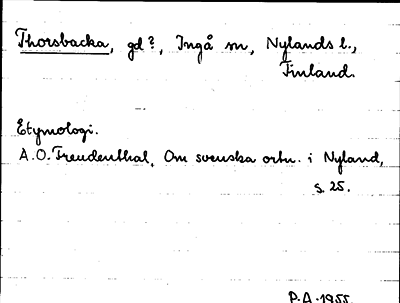 Thorsbacka, gd?, Ingå sn, Nylands l.,
Finland.
Etymologi.
A.O. Freudenthal, Om svenska ortn. i Nyland,
s. 25.
P.A. 1955.